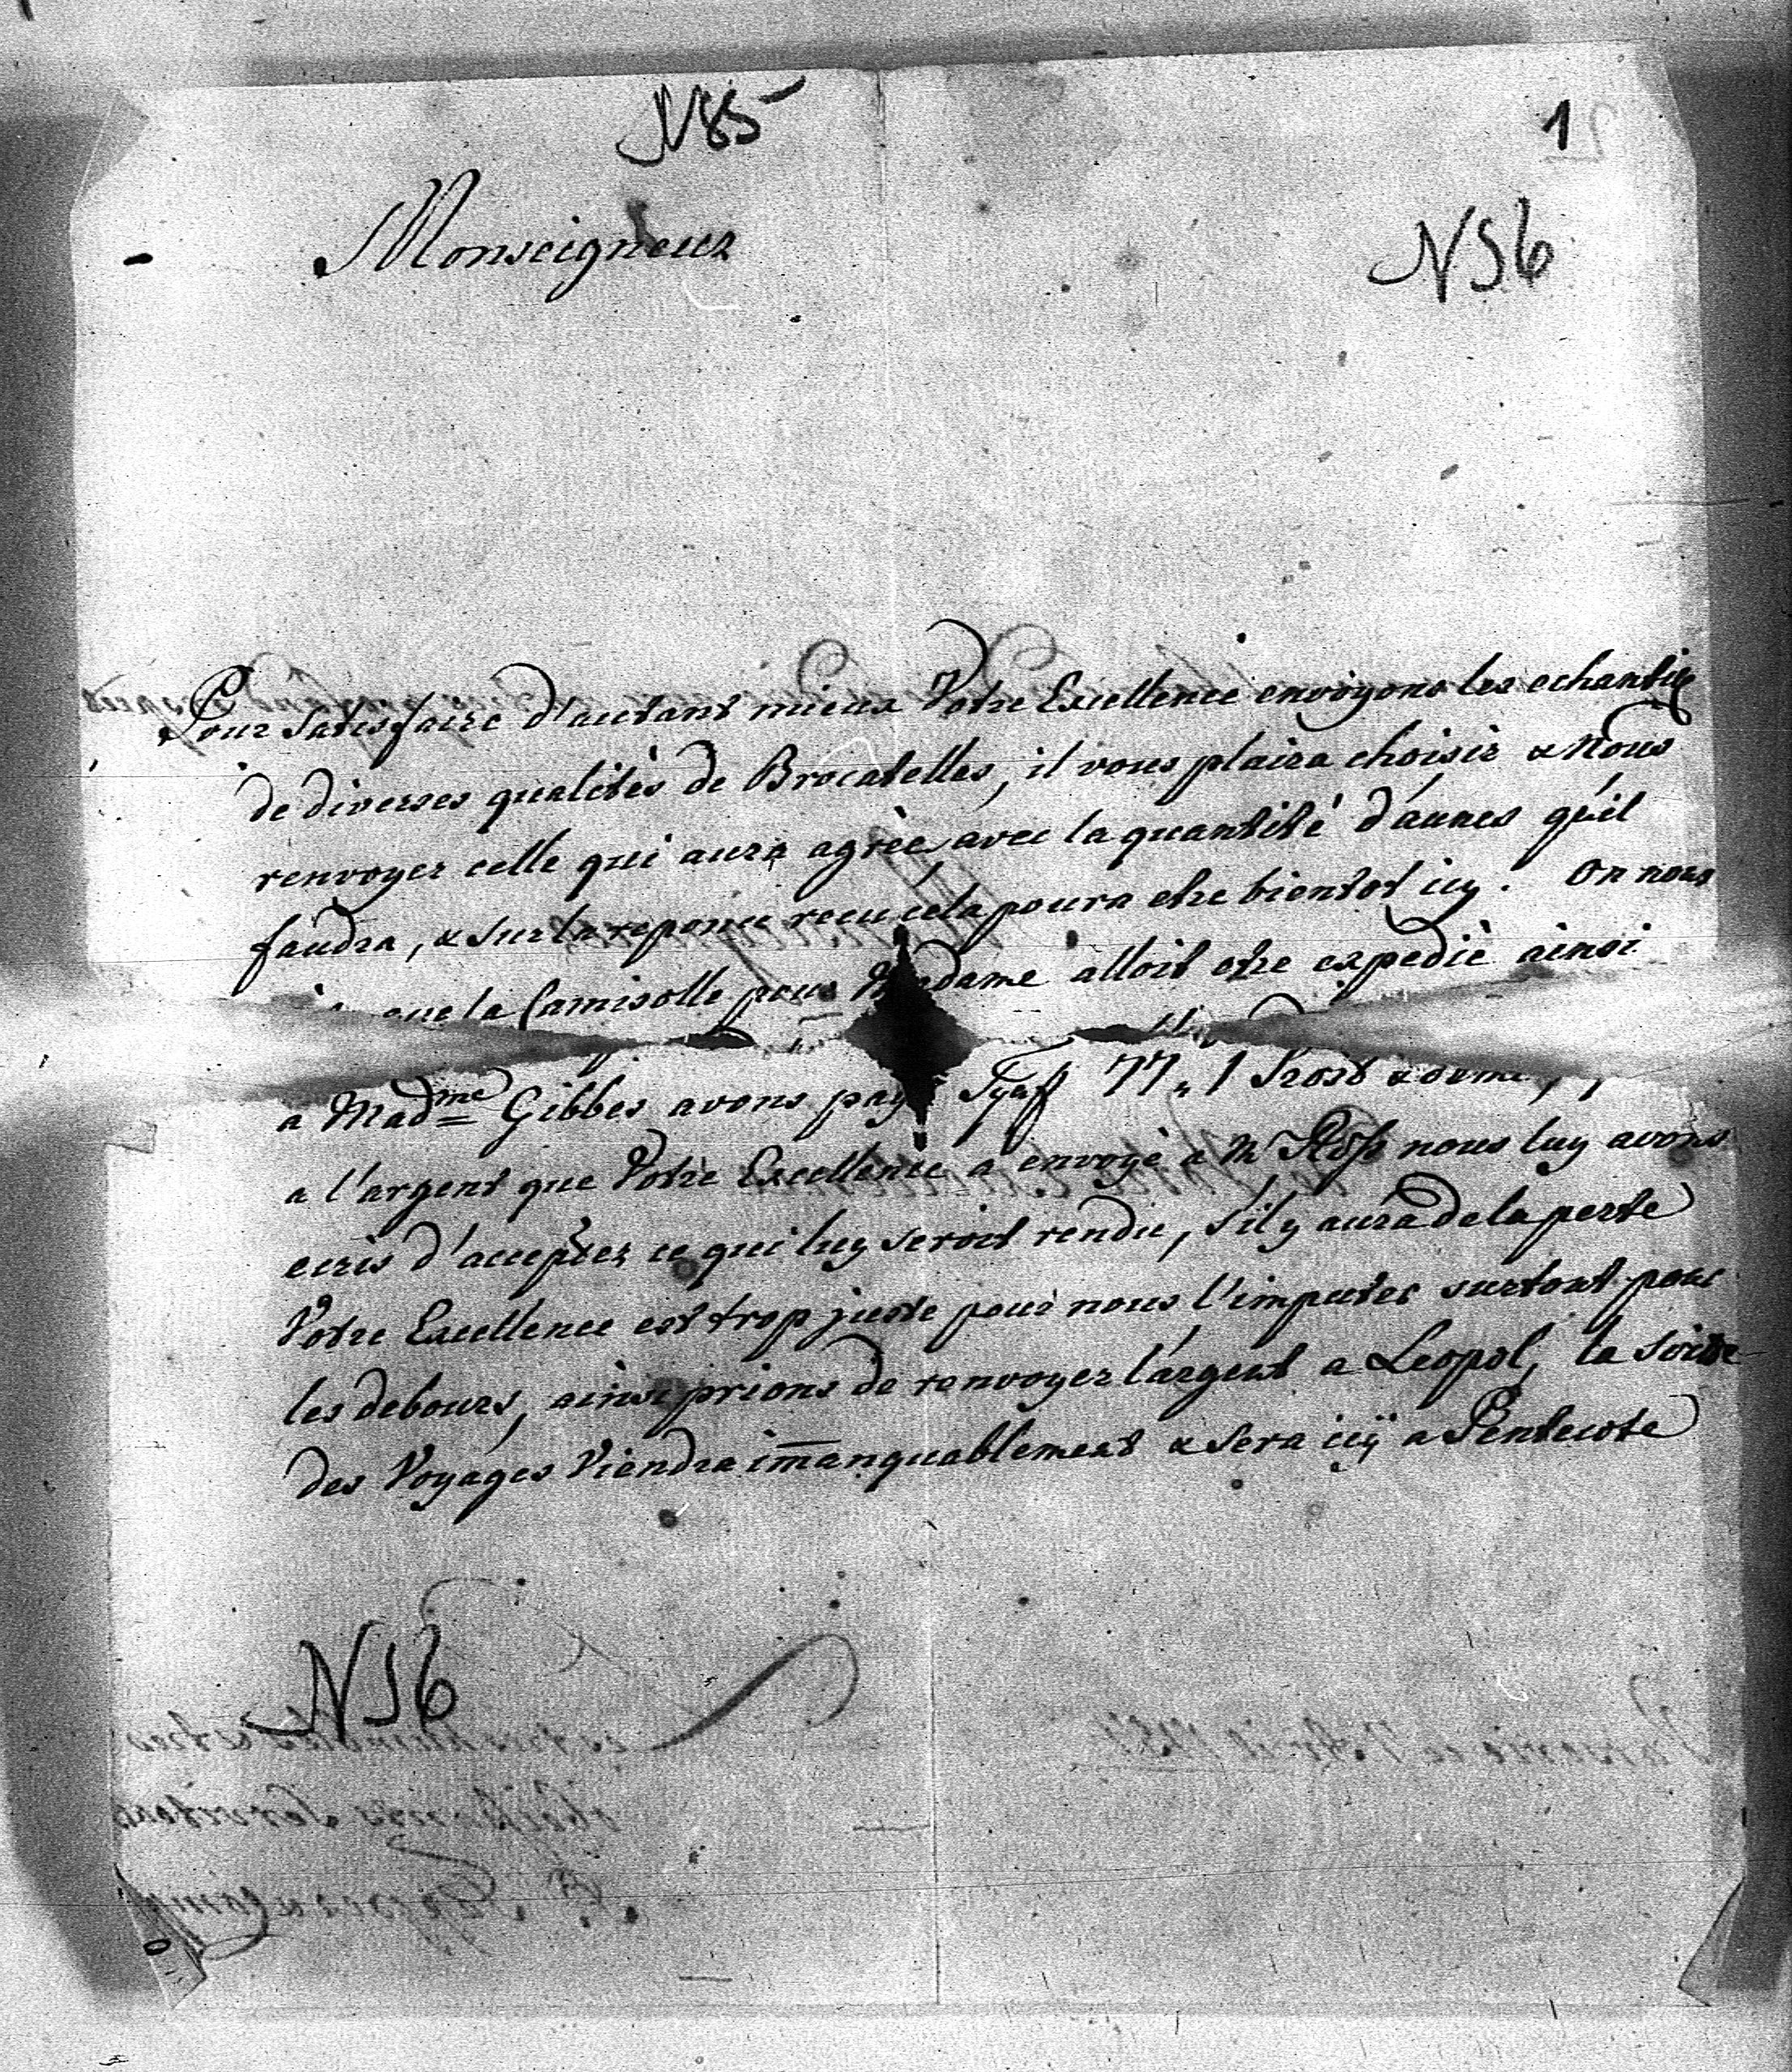 N85
1
Monseigneur
N56
Pour satisfaire d'autant mieux Votre Excellence envoyons les echantill
de diverses qualités de Brocatelles, il vous plaira choisir & Nous
renvoyer celle qui aura agrée, avec la quantité d'aunes qu'il
faudra, & sur la reponse recu cela poura etre bientot icy. On nous
que la Camisolle pour Madame alloit etre expedié ainsi
a Madme Gibbes avons payé 77 1 &
a l'argent que Votre Excellence a envoyé a Mr nous luy avons
ecris d'accepter ce qui luy seroit rendu, s'il y aura de la perte
Votre Excellence est trop juste pour nous l'imputer surtout pour
les debours, ainsi prions de renvoyer l'argent a Leopol, la suitte
des Voyages Viendra im̅anquablement & sera icy a Pentecote
N56